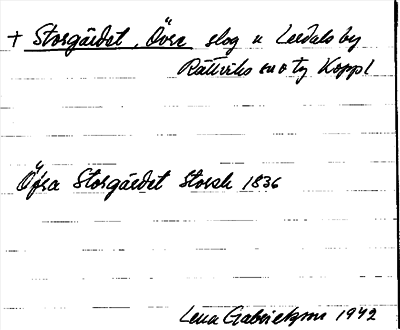 + Storgärdet, Övre slog u Lerdals by
Rättviks sn o tg Koppl
Öfra Storgärdet Storsk 1836
Lena Gabrielsson 1942